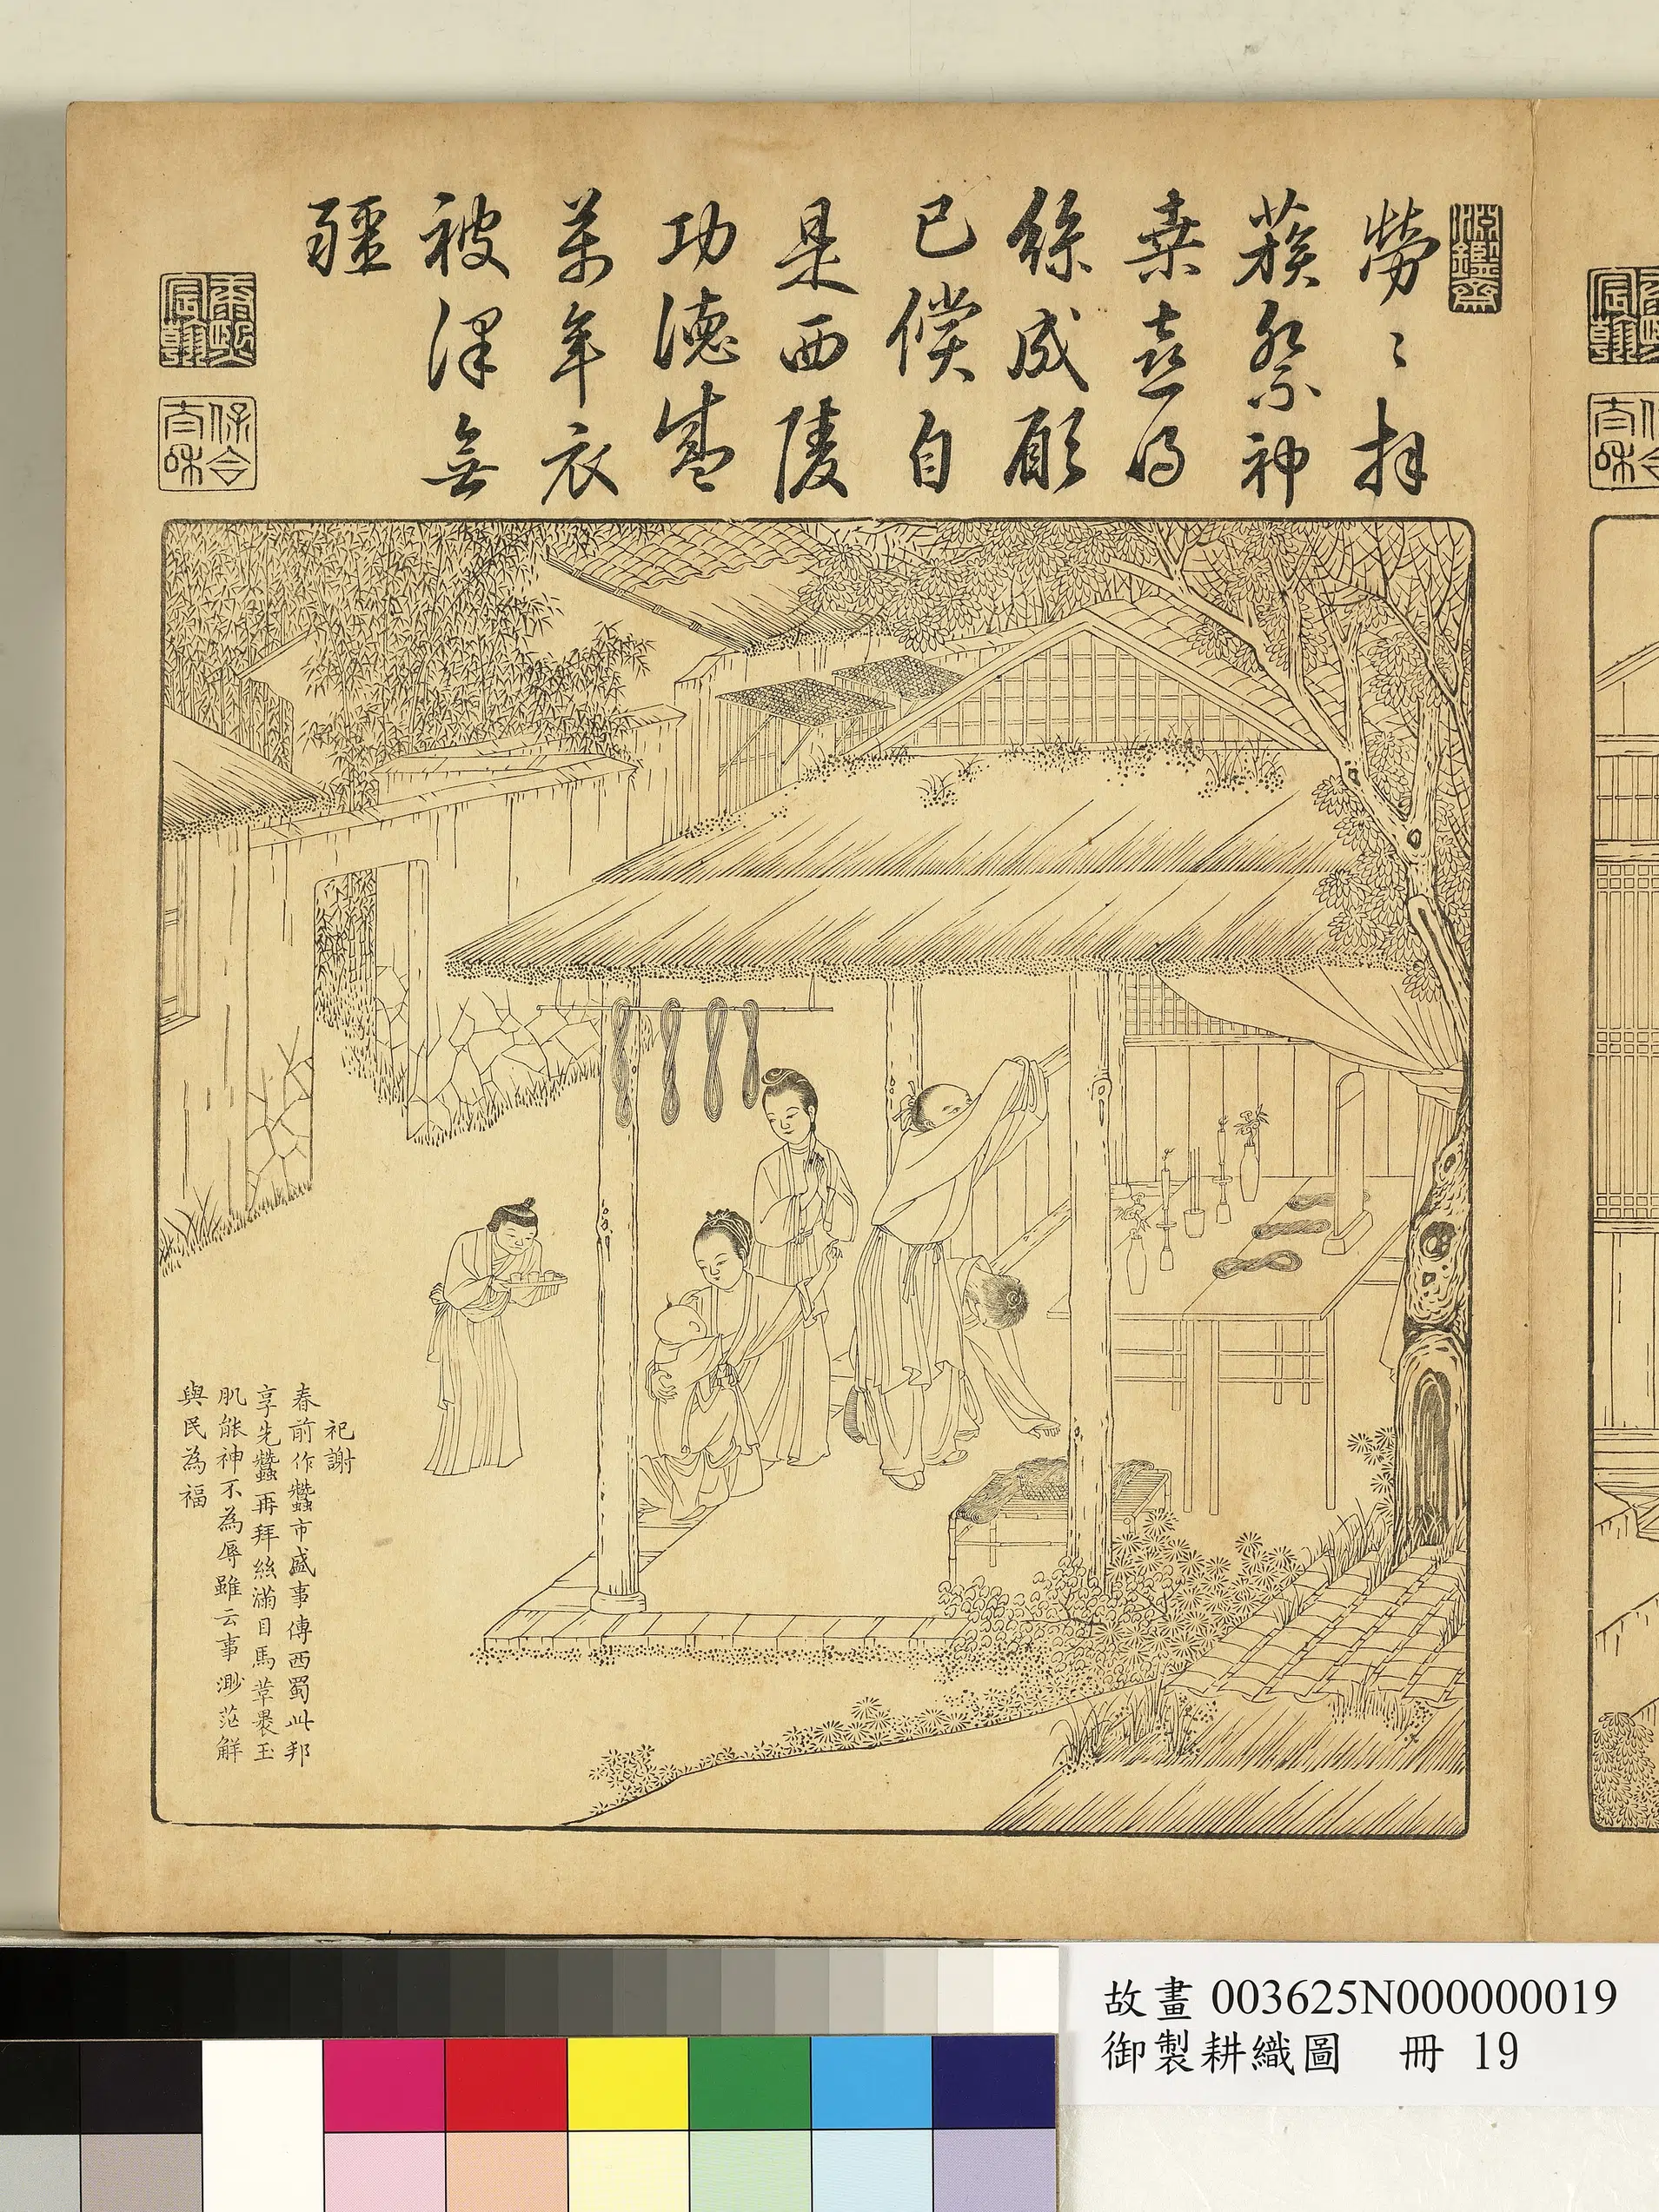 淵鑒齋
勞〻拜
簇祭神
桑喜得
絲成願
已償自
是西陵
功德盛
萬年衣
被澤無
疆
康熙宸翰
保合太和
祀謝
春前作蠶市盛事傳西蜀此邦
享先蠶再拜絲滿目馬革裹玉
肌能神不為辱雖云事渺茫觧
與民為福
故畫 003625N000000019
御製耕織圖 冊 19